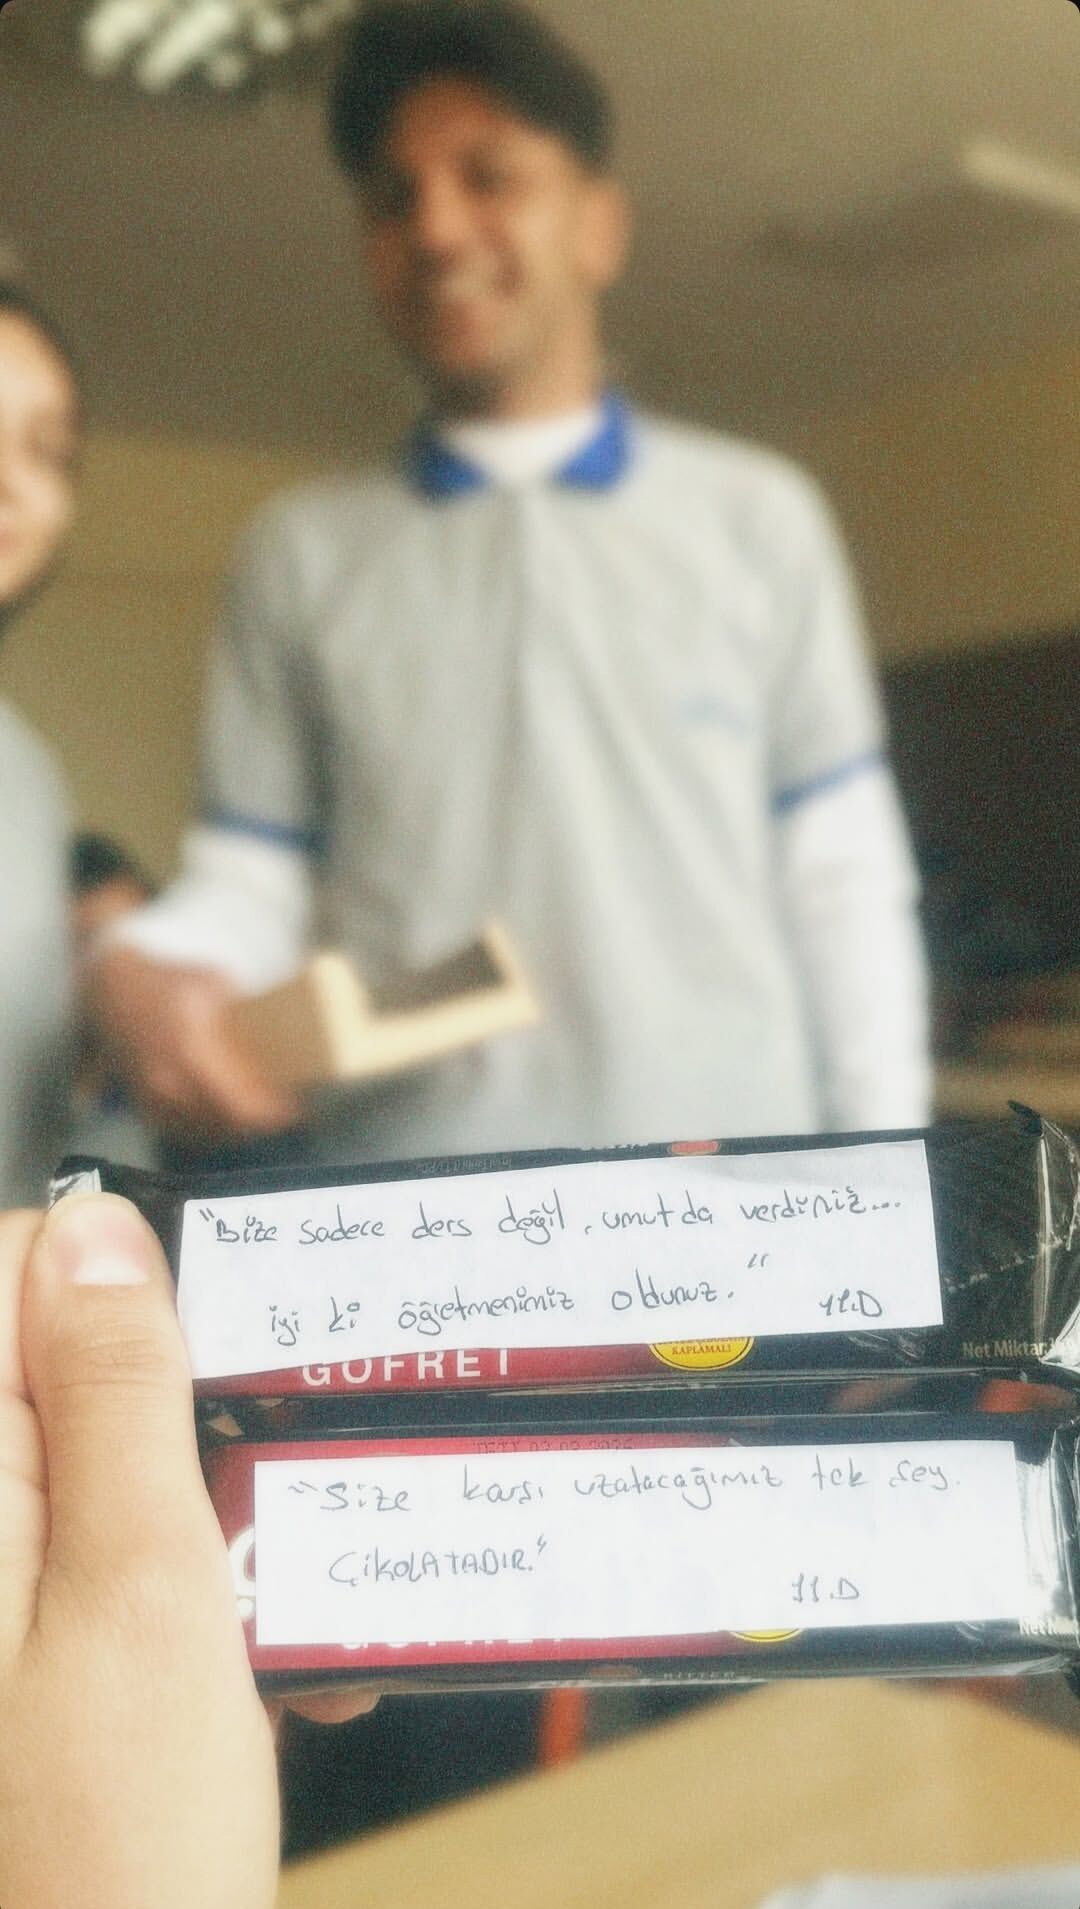 "Bize sadece ders değil, umut da verdiniz...
iyi ki öğretmenimiz oldunuz."
11.D
KAPLAMALI
Net Miktar
GOFRET
"Size karşı uzatacağımız tek şey.
ÇİKOLATADIR."
11.D
BITTER